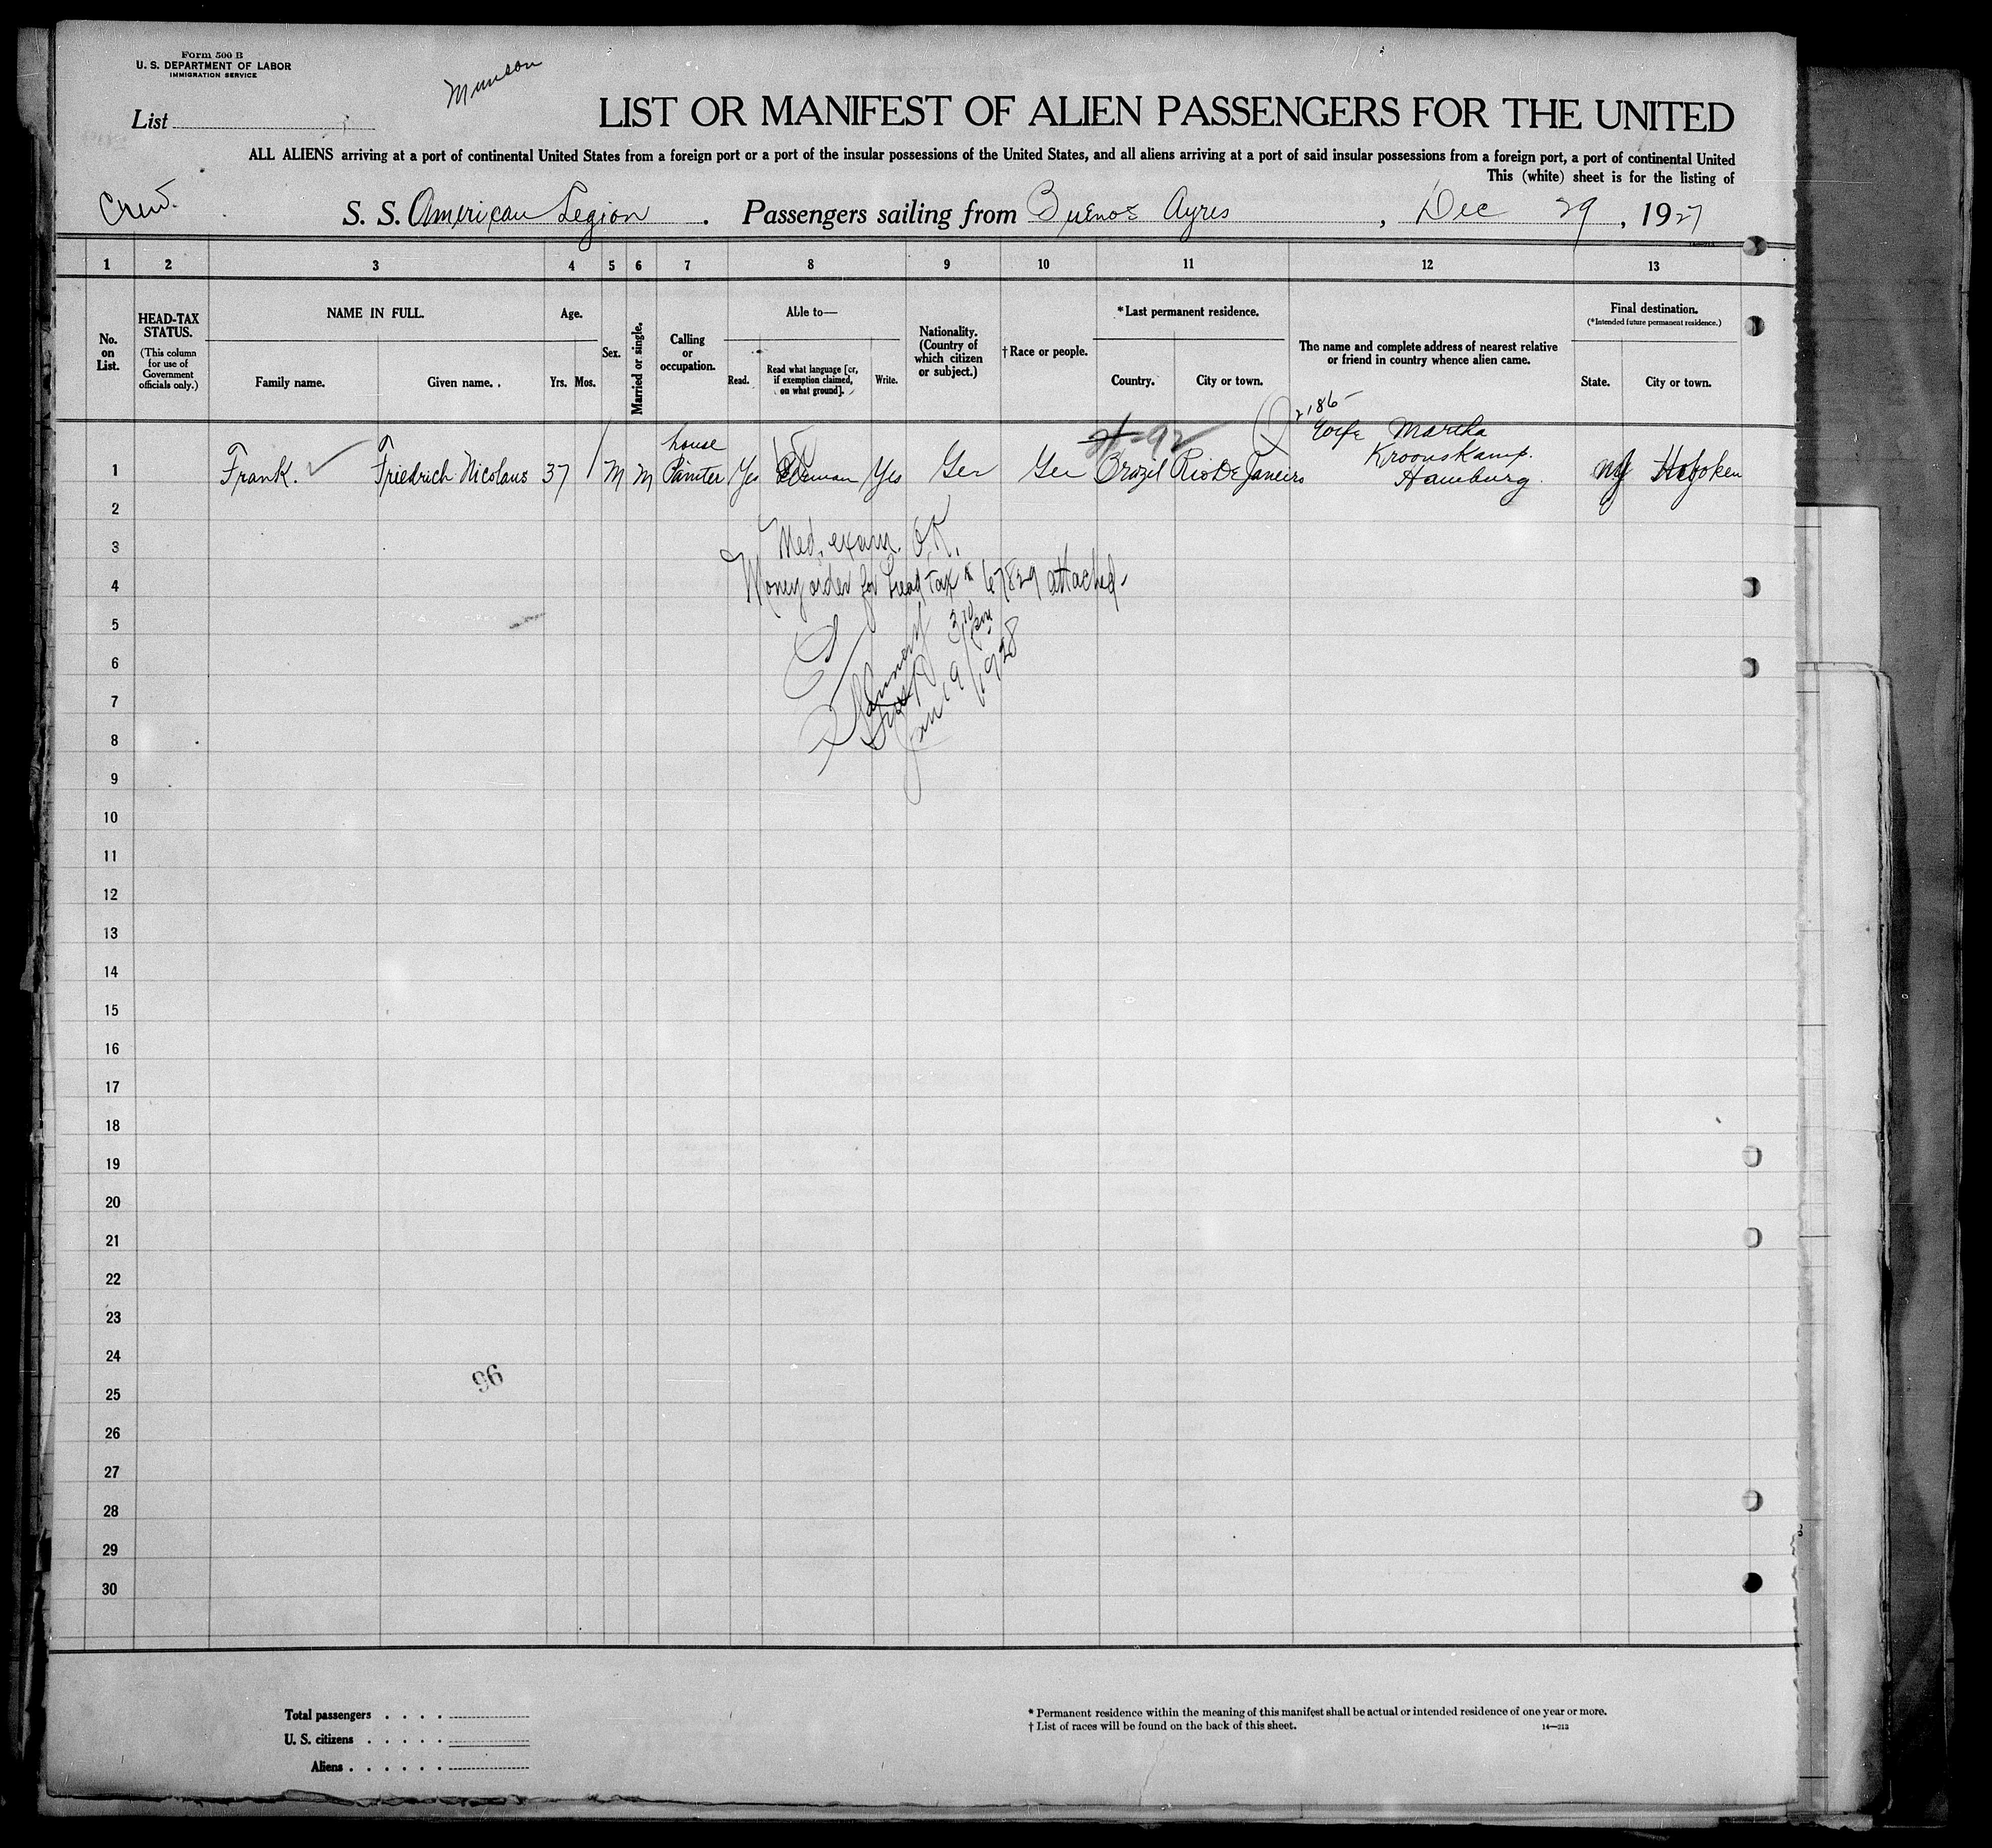 Form 500 B
U. S. DEPARTMENT OF LABOR
IMMIGRATION SERVICE
Munson
List
LIST OR MANIFEST OF ALIEN PASSENGERS FOR THE UNITED
ALL ALIENS arriving at a port of continental United States from a foreign port or a port of the insular possessions of the United States, and all aliens arriving at a port of said insular possessions from a foreign port, a port of continental United
This (white) sheet is for the listing of
Crew.
S. S. American Legion . Passengers sailing from Buenos Ayres , Dec 29 , 1927
1 2 3 4 5 6 7 8 9 10 11 12 13
No. on List.
HEAD-TAX STATUS.
(This column for use of Government officials only.)
NAME IN FULL.
Family name. Given name.
Age.
Yrs. Mos.
Sex.
Married or single.
Calling or occupation.
Able to—
Read. Read what language [or, if exemption claimed, on what ground]. Write.
Nationality. (Country of which citizen or subject.)
†Race or people.
*Last permanent residence.
Country. City or town.
The name and complete address of nearest relative or friend in country whence alien came.
Final destination.
(*Intended future permanent residence.)
State. City or town.
2186
1 Frank. Friedrich Nicolaus 37 M M house Painter Yes German Yes Ger Ger Brazil Rio De Janeiro Wife Martha Kroonskamp. Hamburg. NJ Hoboken
2
Med. exam. O.K.
3
Money order for head tax # 67829 attached
4
5
6
7
Jan 19/1928
8
9
10
11
12
13
14
15
16
17
18
19
20
21
22
23
24
96
25
26
27
28
29
30
Total passengers . . . .
U. S. citizens . . . . .
Aliens . . . . . .
* Permanent residence within the meaning of this manifest shall be actual or intended residence of one year or more.
† List of races will be found on the back of this sheet.
14—213